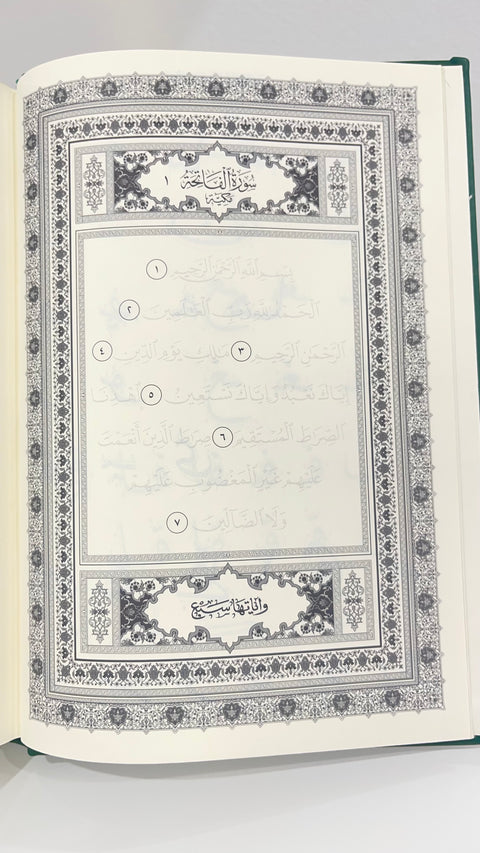 سورة الفاتحة ١
مكية
بسم الله الرحمن الرحيم ١
الحمد لله رب العالمين ٢
الرحمن الرحيم ٣ مالك يوم الدين ٤
إياك نعبد وإياك نستعين ٥ اهدنا
الصراط المستقيم ٦ صراط الذين أنعمت
عليهم غير المغضوب عليهم
ولا الضالين ٧
وآياتها سبع